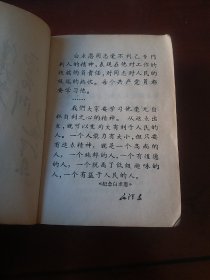 白求恩同志毫不利己专门
利人的精神，表现在他对工作的
极端的负责任，对同志对人民的
极端的热忱。每个共产党员都
要学习他。
……
我们大家要学习他毫无自
私自利之心的精神。从这点出
发，就可以变为大有利于人民的
人。一个人能力有大小，但只要
有这点精神，就是一个高尚的
人，一个纯粹的人，一个有道德
的人，一个脱离了低级趣味的
人，一个有益于人民的人。
《纪念白求恩》
毛泽东